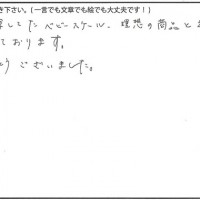 き下さい。(一言でも文章でも絵でも大丈夫です!)
してた ベビースケール、理想の商品と
ております。
とうございました。